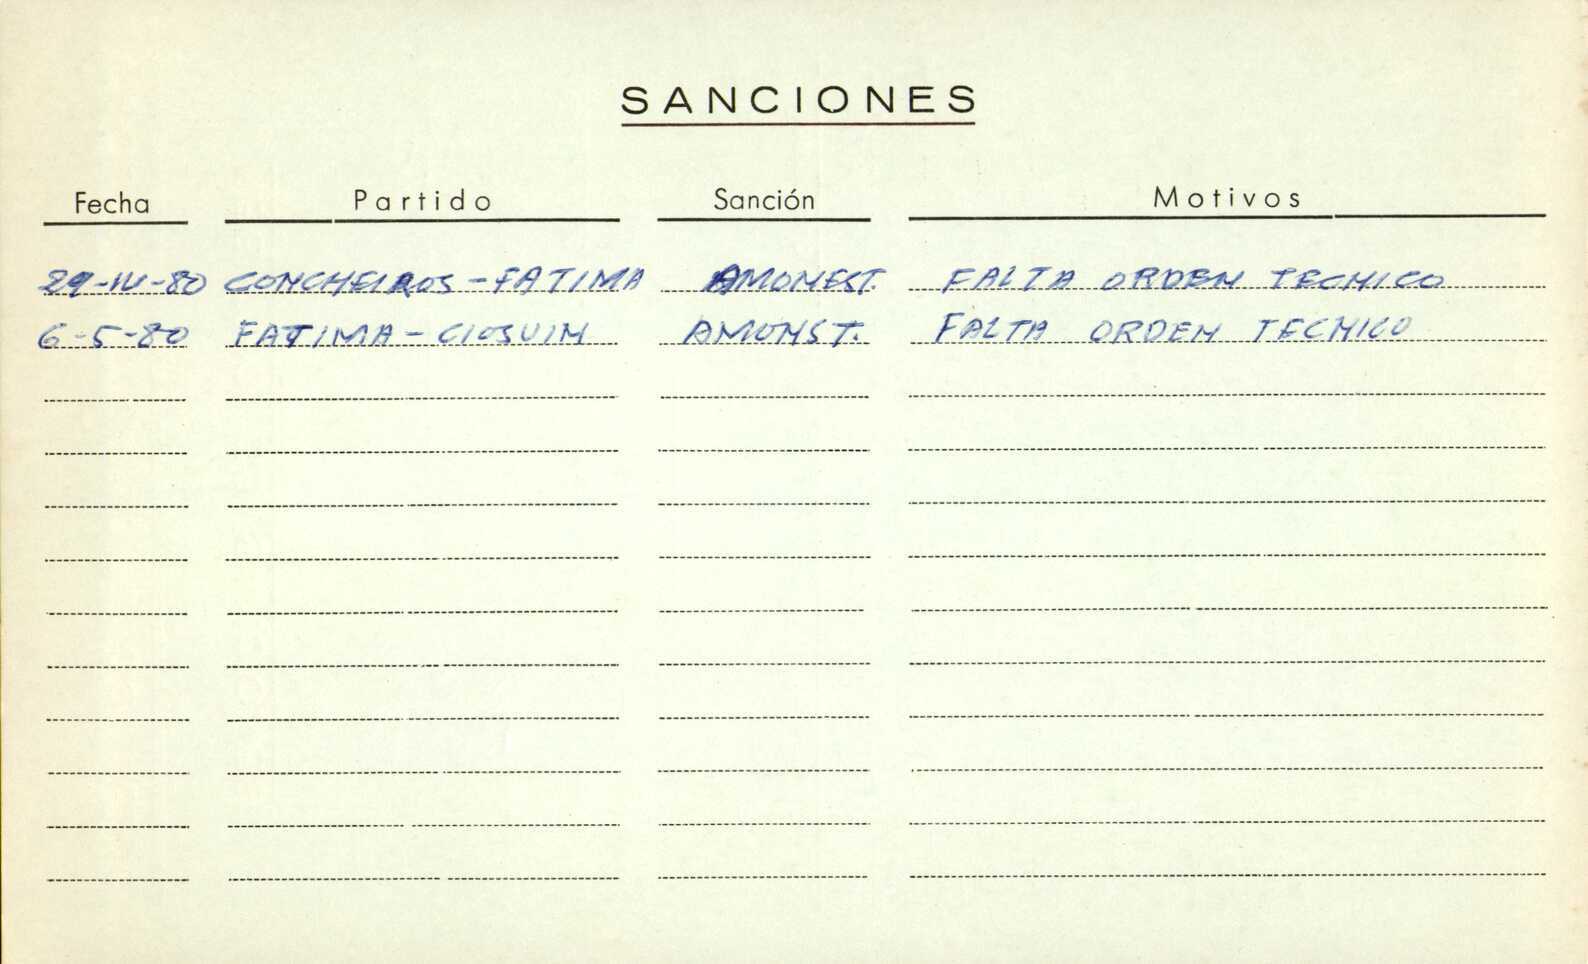 SANCIONES
Fecha Partido Sanción Motivos
29-IV-80 CONCHEIROS - FATIMA AMONEST. FALTA ORDEN TECNICO
6-5-80 FATIMA - CIOSUIN AMONST. FALTA ORDEN TECNICO